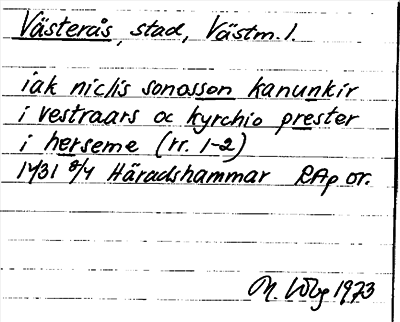 Västerås, stad, Västm. l.
iak niclis sonasson kanunkir
i vestraars oc kyrchio prester
i herseme (rr. 1-2)
1431 8/4 Häradshammar RAp or.
1973